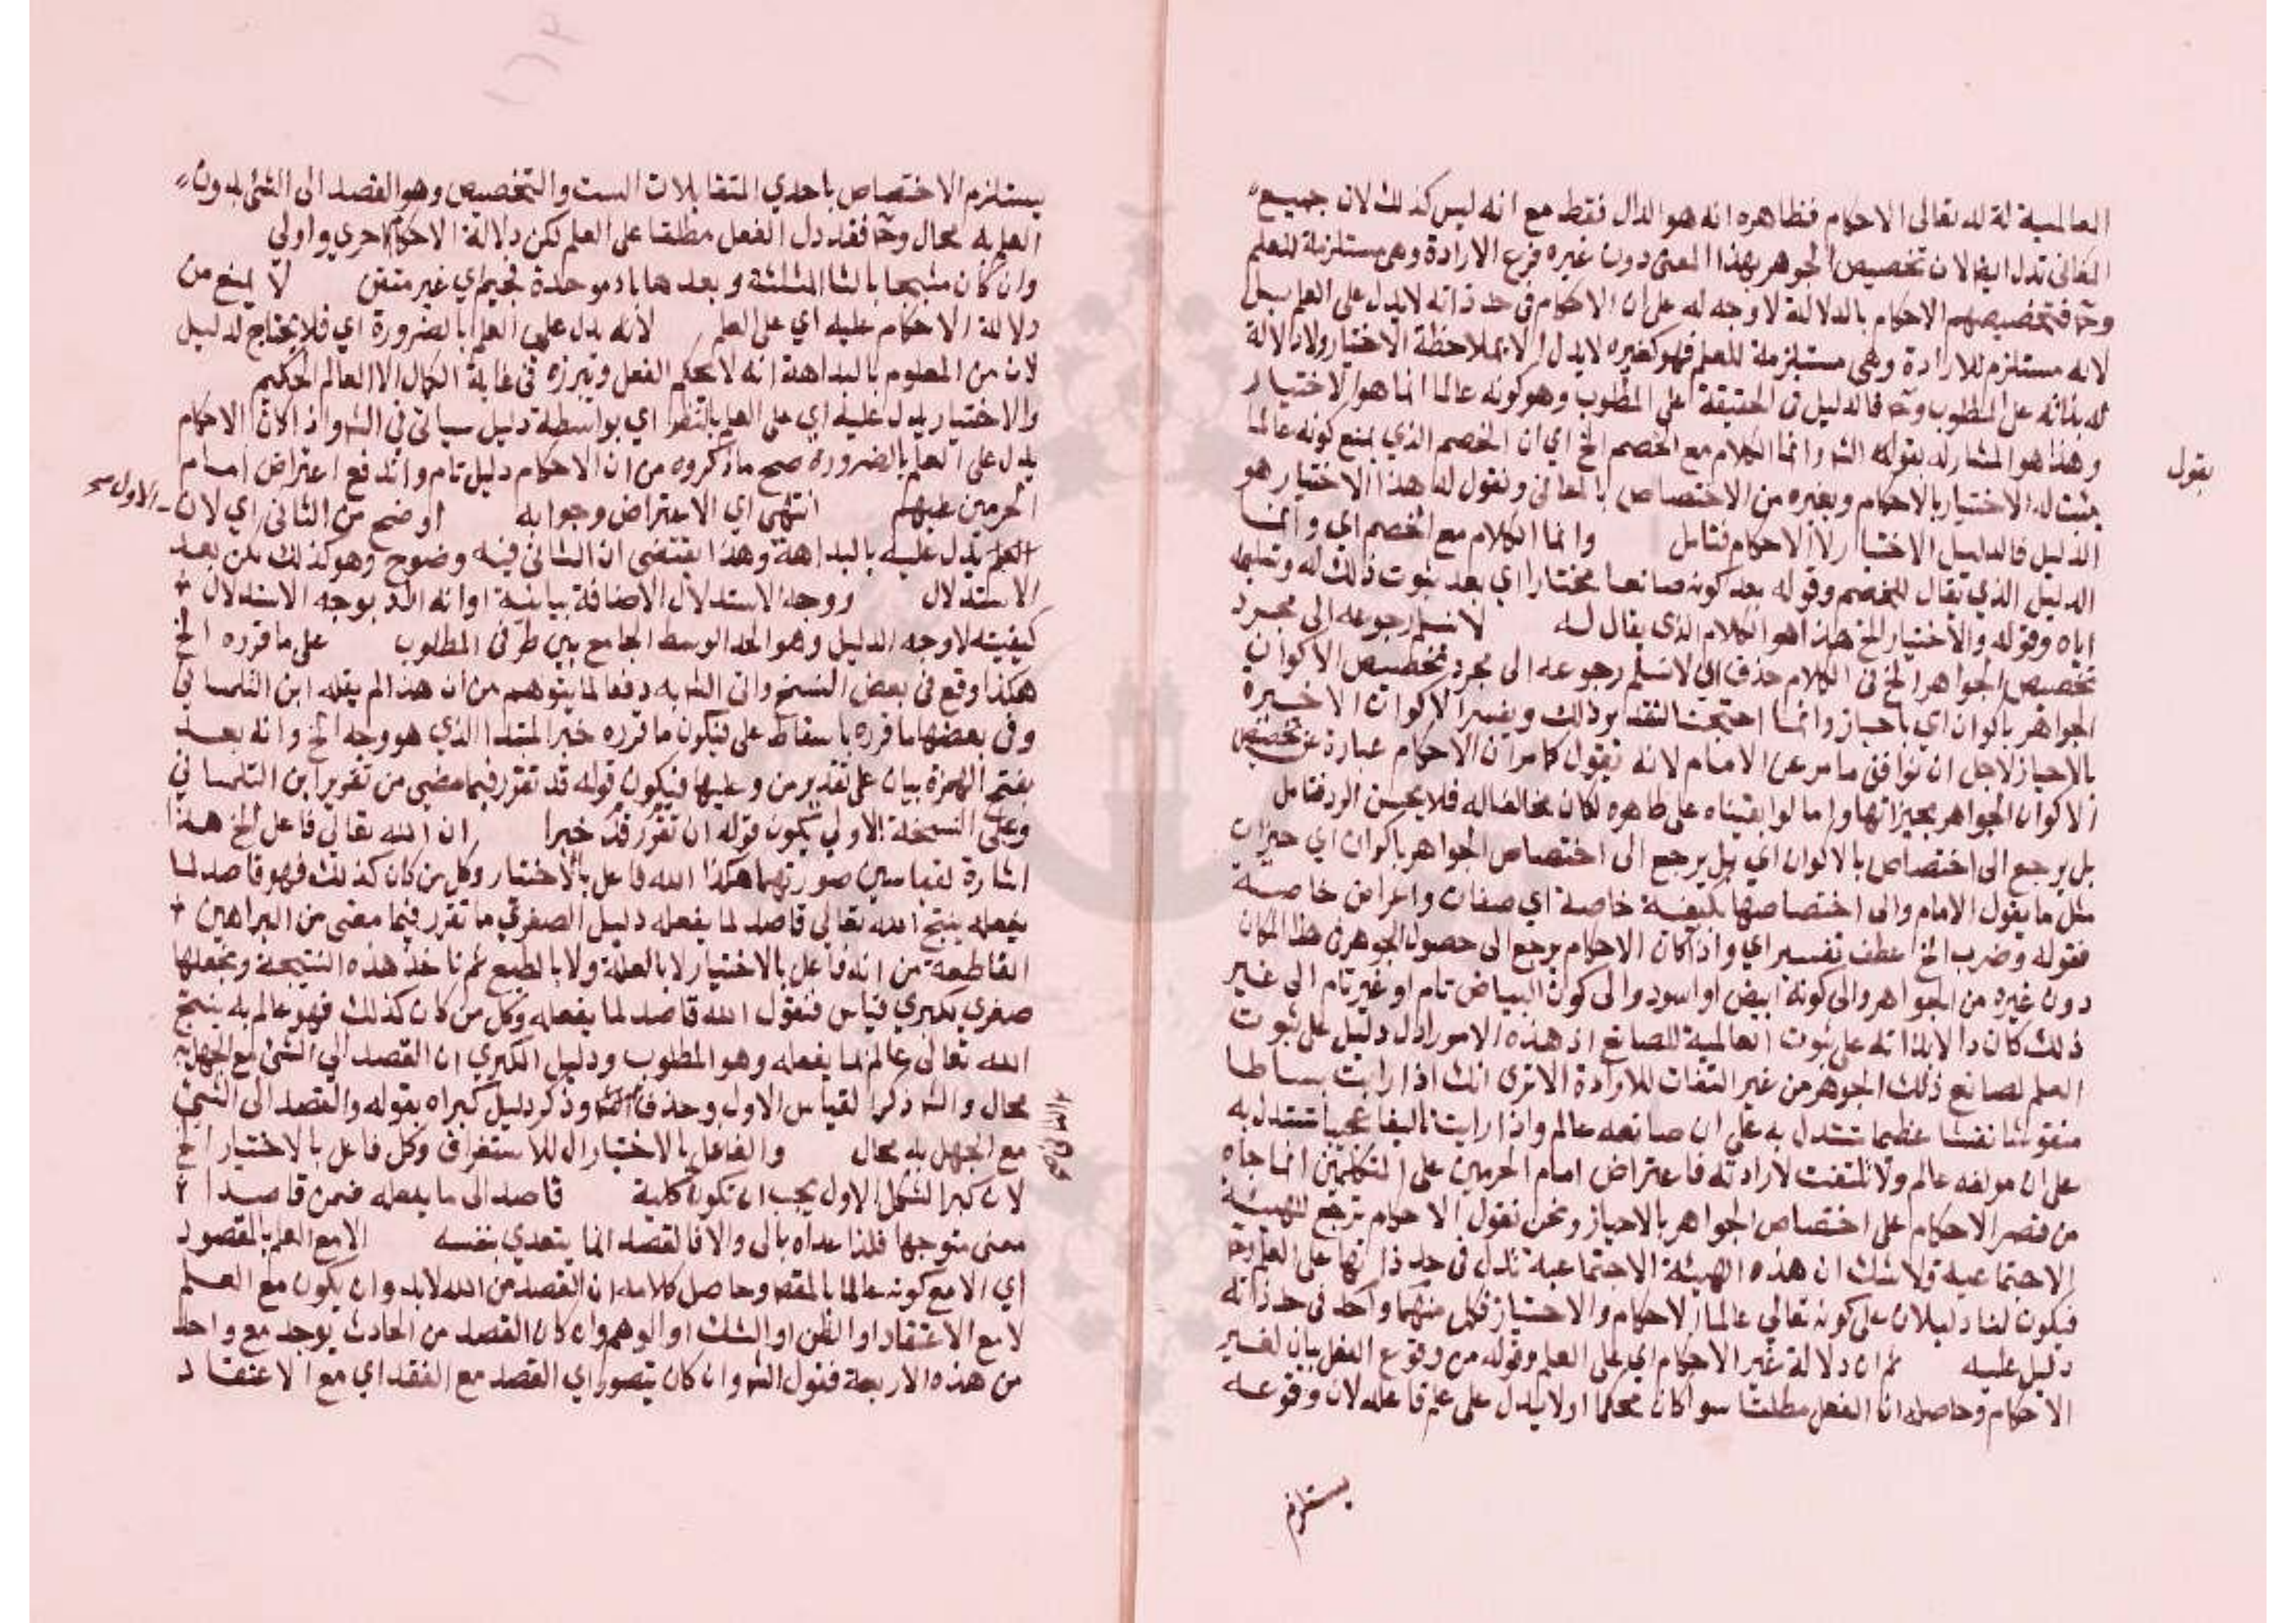 العالمية له لله تعالى الاحكام فظاهره انه هو الدال فقط مع انه ليس كذلك لان جميع
المعانى تدل ايضا لان تخصيص الجوهر بهذا المعنى دون غيره فرع الارادة وهى مستلزمة للعلم
وح فتخصيصهم الاحكام بالدلالة لا وجه له على ان الاحكام فى حد ذاته لا يدل على العلم بل
لانه مستلزم للارادة وهى مستلزمة للعلم فهو كغيره لا يدل الا بملاحظة الاختيار ولا دلالة
له بذاته على المطلوب وح فالدليل فى الحقيقة على المطلوب وهو كونه عالما انما هو الاختيار
وهذا هو المشار له بقوله الش وانما الكلام مع الخصم الخ اي ان الخصم الذي يمنع كونه عالما
يثبت له الاختيار بالاحكام وبغيره من الاختصاص بالمعانى ونقول له هذا الاختيار هو
يقول
الدليل فالدليل الاختيار لا الاحكام فتامل وانما الكلام مع الخصم اي وانما
الدليل الذي يقال للخصم وقوله بعد كونه صانعا مختارا اي بعد ثبوت ذلك له وتسليمه
اياه وقوله والاختيار الخ هذا هو الكلام الذى يقال له لا نسلم رجوعه الى مجرد
تخصيص الجواهر الخ فى الكلام حذف اي لا نسلم رجوعه الى مجرد تخصيص الاكوان
الجواهر باكوان اي باحياز وانما احتجنا لتقدير ذلك وتفسير الاكوان الاخيرة
بالاحياز لاجل ان توافق ما مر عن الامام لانه يقول كما مر ان الاحكام عبارة عن تخصيص
الاكوان الجواهر بحيزاتها واما لو ابقيناه على ظاهره لكان مخالفا له فلا يحسن الرد فتامل
بل يرجع الى اختصاص بالالوان اي بل يرجع الى اختصاص الجواهر باكوان اي حيزان
مثل ما يقول الامام والى اختصاصها بكيفية خاصة اي صفات واعراض خاصة
فقوله وضرب الخ عطف تفسير اي واذا كان الاحكام يرجع الى حصول الجوهر فى هذا المكان
دون غيره من الجواهر والى كونه ابيض او اسود والى كون البياض تام او غير تام الى غير
ذلك كان دالا بذاته على ثبوت العالمية للصانع اذ هذه الامور ادل دليل على ثبوت
العلم لصانع ذلك الجوهر من غير التفات للارادة الا ترى انك اذا رايت بساطا
منقوشا نقشا عظيما تستدل به على ان صانعه عالم واذا رايت تاليفا عجيبا تستدل به
على ان مولفه عالم ولا تلتفت لارادته فاعتراض امام الحرمين على المتكلمين انما جاه
من قصر الاحكام على اختصاص الجواهر بالاحياز ونحن نقول الاحكام ترجع للهيئة
الاجتماعية ولا شك ان هذه الهيئة الاجتماعية تدل فى حد ذاتها على العلم وح
فيكون لنا دليلان على كونه تعالى عالما الاحكام والاختيار فكل منهما واحد فى حد ذاته
دليل عليه ثم ان دلالة غير الاحكام اي على العلم وقوله من وقوع الفعل بيان لغير
الاحكام وحاصله ان الفعل مطلقا سوا كان محكما او لا يدل على علم فاعله لان وقوعه
يستلزم
يستلزم الاختصاص باحدي المتقابلات الست والتخصيص وهو القصد الى الشئ بدون
العلم به محال وح فقد دل الفعل مطلقا على العلم لكن دلالة الاحكام احري واولي
وان كان مثبجا بالثا المثلثة وبعدها باء موحدة فجيم اي غير متقن لا يمنع من
دلالة الاحكام عليه اي على العلم لانه يدل على العلم بالضرورة اي فلا يحتاج لدليل
لان من المعلوم بالبداهة انه لا يحكم الفعل ويبرزه فى غاية الكمال الا العالم الحكيم
والاختيار يدل عليه اي على العلم بالنظر اي بواسطة دليل سياتى فى الش واذا كان الاحكام
يدل على العلم بالضرورة صح ما ذكروه من ان الاحكام دليل تام واندفع اعتراض امام
الحرمين عليهم انتهى اي الاعتراض وجوابه اوضح من الثانى اي لان
الاول صح
العلم يدل عليه بالبداهة وهذا يقتضى ان الثانى فيه وضوح وهو كذلك لكن بعد
الاستدلال ووجه الاستدلال الاضافة بيانية او انه اراد بوجه الاستدلال
كيفيته لا وجه الدليل وهو الحد الوسط الجامع بين طرفى المطلوب على ما قرره الخ
هكذا وقع فى بعض النسخ واتى الش به دفعا لما يتوهم من ان هذا لم يقله ابن التلمسانى
وفى بعضها ما قرره باسقاط على فيكون ما قرره خبر المبتدا الذي هو وجه الخ وانه بعد
بفتح الهمزة بيان على تقدير من وعليها فيكون قوله قد تقرر فيما مضى من تقرير ابن التلمسانى
وعلى النسخة الاولي يكون قوله ان تقرر قد خبرا ان الله تعالى فاعل الخ هذا
اشارة لقياسين صورتهما هكذا الله فاعل بالاختيار وكل من كان كذلك فهو قاصد لما
يفعله ينتج الله تعالى قاصد لما يفعله دليل الصغري ما تقرر فيما مضى من البراهين
القاطعة من انه فاعل بالاختيار لا بالعلة ولا بالطبع ثم ناخذ هذه النتيجة ونجعلها
صغري لكبري قياس فنقول الله قاصد لما يفعله وكل من كان كذلك فهو عالم به ينتج
الله تعالى عالم لما يفعله وهو المطلوب ودليل الكبري ان القصد الي الشئ مع الجهل به
محال والش ذكر القياس الاول وحذف وذكر دليل كبراه بقوله والقصد الى الشئ
مع الجهل به محال والفاعل بالاختيار ال للاستغراق وكل فاعل بالاختيار الخ
لان كبرا الشكل الاول يجب ان تكون كلية قاصد الى ما يفعله ضمن قاصدا
معنى متوجها فلذا عداه بالى والا فالقصد انما يتعدي بنفسه الا مع العلم بالمقصود
اي الا مع كونه عالما بالمقصد وحاصل كلامه ان القصد من الله لابد وان يكون مع العلم
لا مع الاعتقاد او الظن او الشك او الوهم وان كان القصد من الحادث يوجد مع واحد
من هذه الاربعة فنقول الش وان كان يتصور اي القصد مع الفقد اي مع الاعتقاد